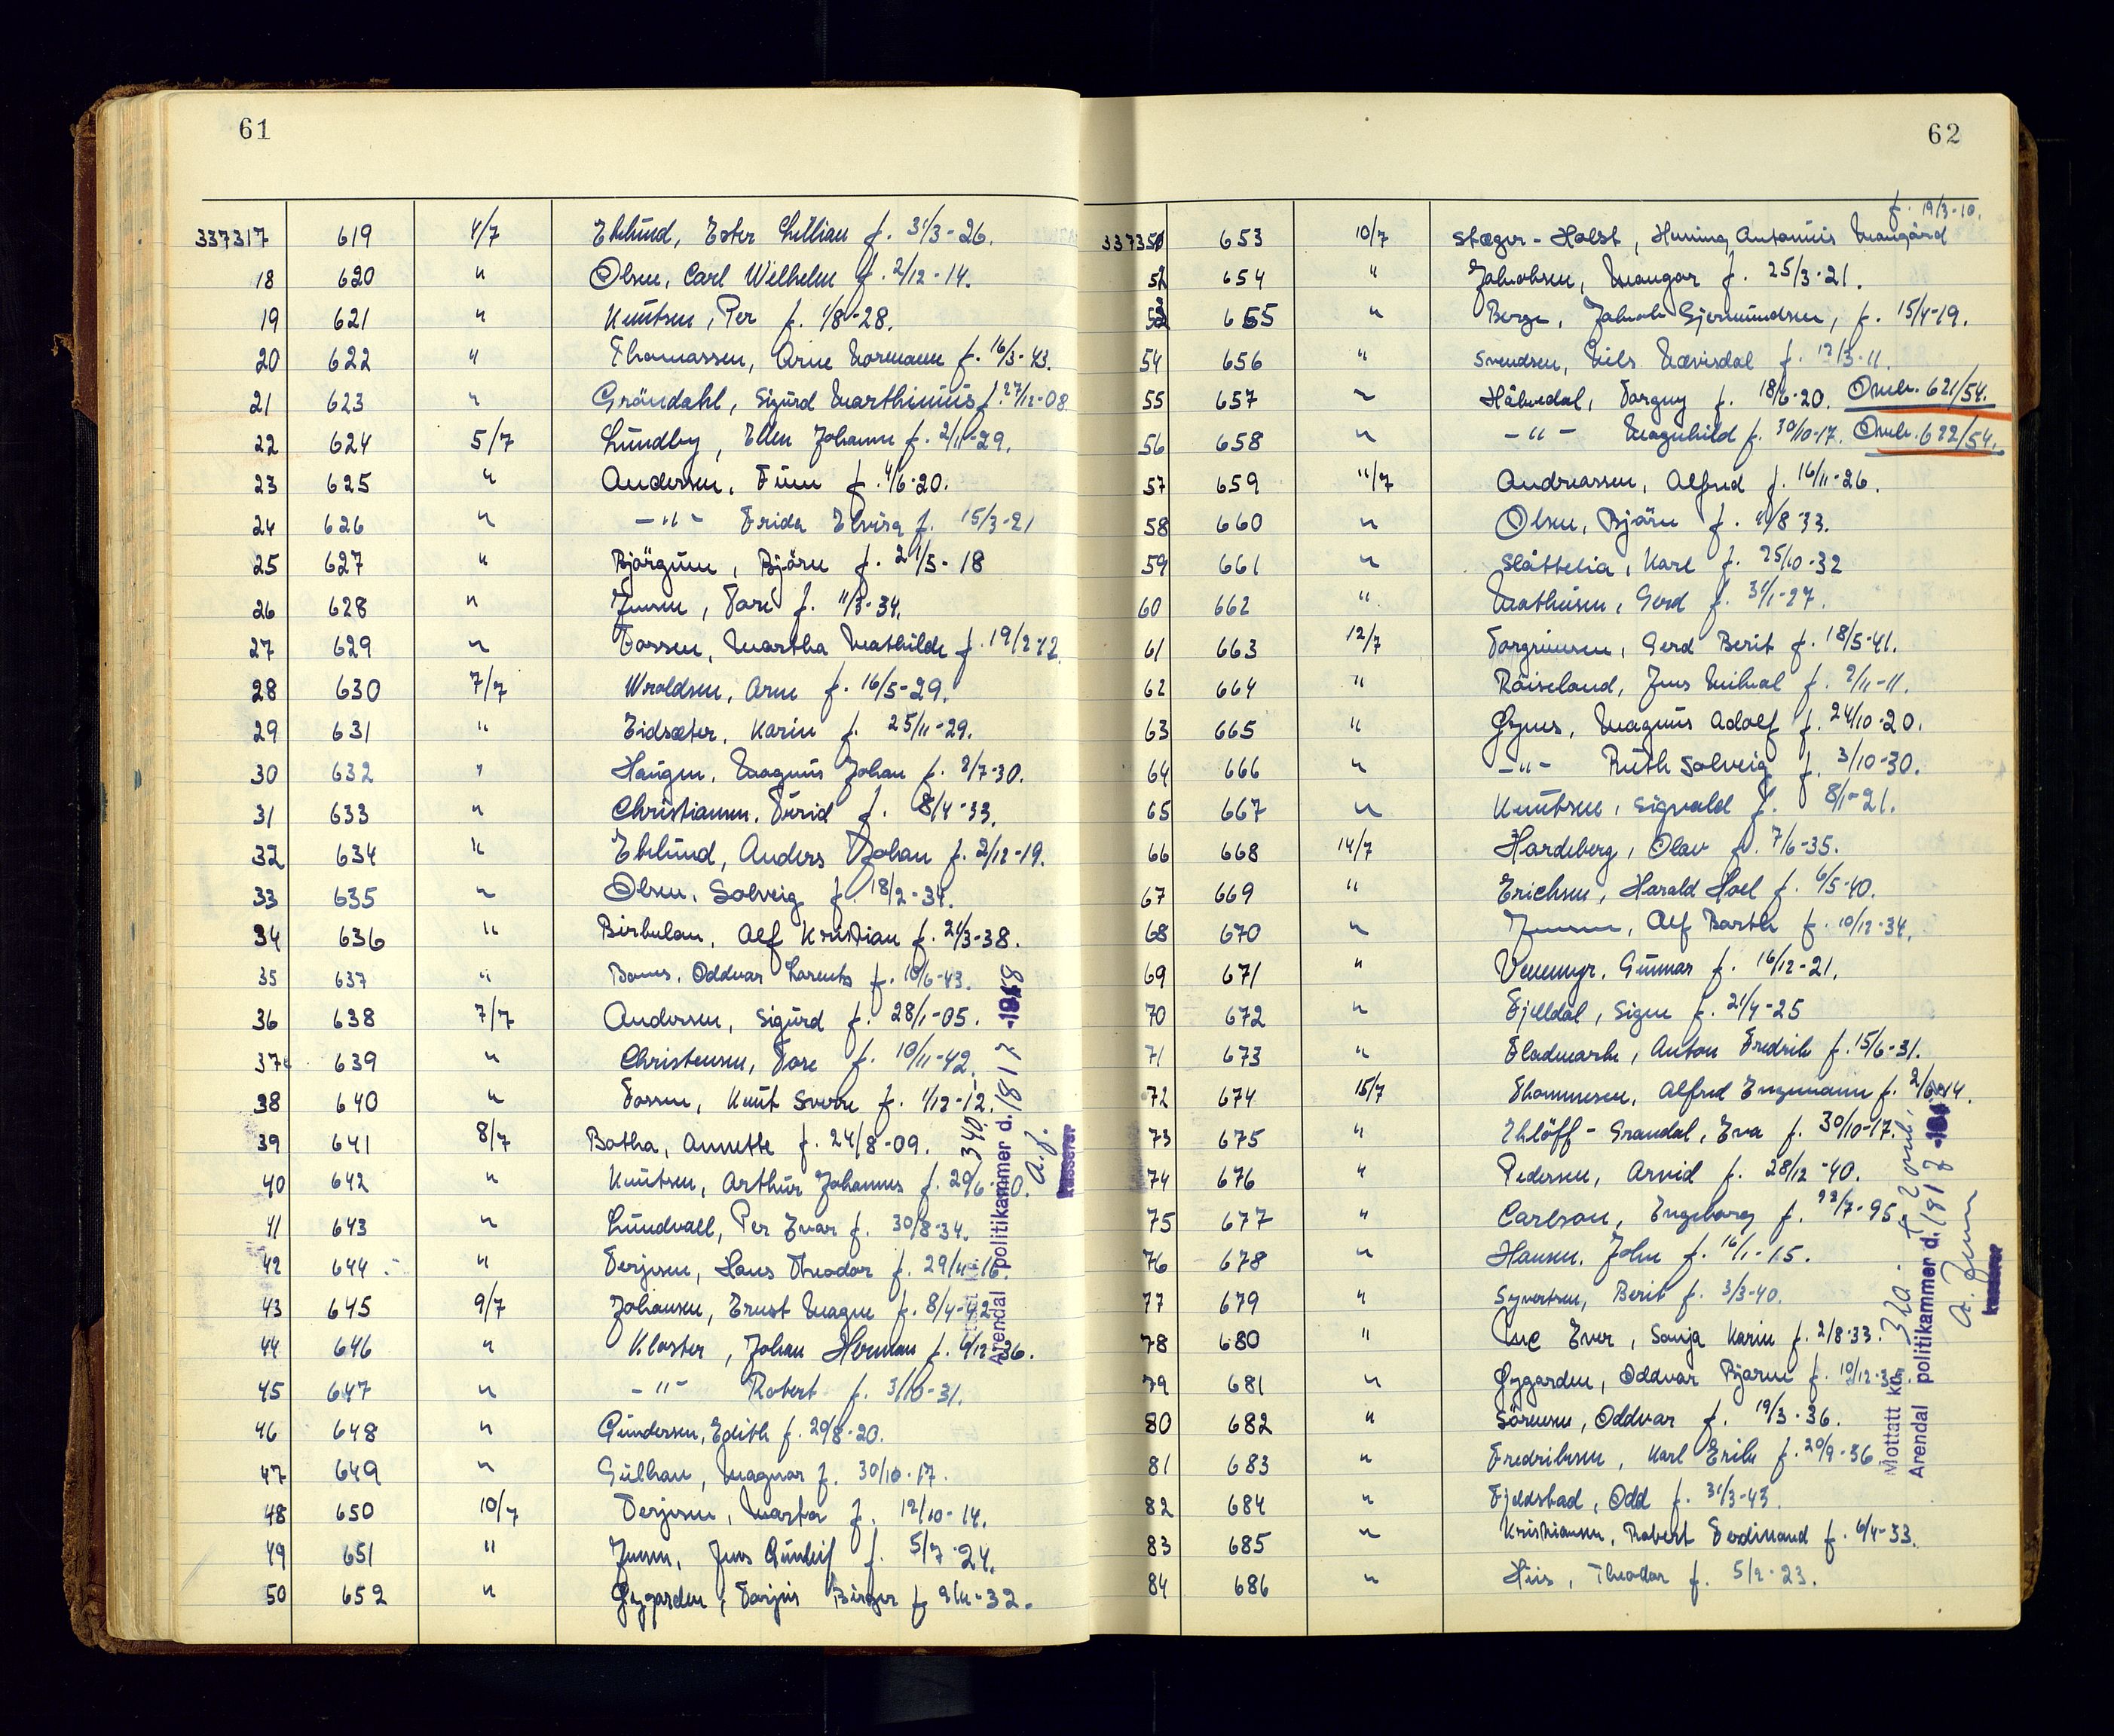 61
337317 619 4/7 Eklund, Ester Lillian f. 31/3-26.
18 620 " Olsen, Carl Wilhelm f. 2/12-14.
19 621 " Knutsen, Per f. 1/8-28.
20 622 " Thomassen, Arne Normann f. 16/3-43.
21 623 " Gröndahl, Sigurd Marthinius f. 27/12-08.
22 624 5/7 Lundby, Ellen Johanne f. 2/11-29.
23 625 " Andersen, Finn f. 4/6-20.
24 626 " -"- Frida Elvira f. 15/3-21
25 627 " Bjørgum, Bjørn f. 21/5-18
26 628 " Jensen, Tore f. 11/3-34.
27 629 " Fossen, Martha Mathilde f. 19/2-12.
28 630 7/7 Wroldsen, Arne f. 16/5-29.
29 631 " Eidsæter, Karin f. 25/11-29.
30 632 " Haugen, Magnus Johan f. 8/7-30.
31 633 " Christiansen, Turid f. 8/4-33.
32 634 " Eklund, Anders Johan f. 2/12-19.
33 635 " Olsen, Solveig f. 18/2-34.
34 636 " Birkeland, Alf Kristian f. 21/3-38.
35 637 " Oddvar Lorentz f. 10/6-43.
36 638 7/7 Andersen, Sigurd f. 28/1-05.
37 639 " Christensen, Tore f. 10/11-42.
38 640 " Fossen, Knut Sverre f. 1/12-12.
39 641 8/7 Botha, Annette f. 24/8-09.
40 642 " Knutsen, Arthur Johannes f. 29/6-
41 643 " Lundvall, Per Ivar f. 30/8-34.
42 644 " Terjesen, Hans Theodor f. 29/11-16.
43 645 9/7 Johansen, Ernst Magne f. 8/4-42
44 646 " Kloster, Johan Herman f. 6/12-36.
45 647 " -"- Robert f. 3/10-31.
46 648 " Gundersen, Edith f. 29/8-20.
47 649 " Magnar f. 30/10-17.
48 650 10/7 Terjesen, Marta f. 12/10-14.
49 651 " Jensen, Jens Gunleif f. 5/7-24.
50 652 " Øygarden, Torjus Birger f. 9/11-32.
340.
Arendal politikammer d. 18/7 -1958
A.J.
kasserer
62
f. 19/3-10.
337351 653 10/7 Stæger-Holst, Henning Antonius Maugård
52 654 " Jakobsen, Mangor f. 25/3-21.
53 655 " Berge, Jakob Gjermundsen, f. 15/4-19.
54 656 " Svendsen, Nils Nævisdal f. 12/3-11.
55 657 " Håkedal, Torgny f. 18/6-20. Omb. 621/54.
56 658 " -"- Magnhild f. 30/10-17. Omb. 622/54.
57 659 11/7 Andreassen, Alfred f. 16/11-26.
58 660 " Olsen, Bjørn f. 11/8-33.
59 661 " Slåttelia, Karl f. 25/10-32
60 662 " Mathisen, Gerd f. 31/1-27.
61 663 12/7 Torgrimsen, Gerd Berit f. 18/5-41.
62 664 " Röiseland, Jens Mikal f. 2/11-11.
63 665 " Øynes, Magnus Adolf f. 24/10-20.
64 666 " -"- Ruth Solveig f. 3/10-30.
65 667 " Knutsen, Sigvald f. 8/1-21.
66 668 14/7 Hardeberg, Olav f. 7/6-35.
67 669 " Erichsen, Harald Hoel f. 6/5-40.
68 670 " Jensen, Alf Barth f. 10/12-34.
69 671 " Venemyr, Gunnar f. 16/12-21.
70 672 " Fjelldal, Signe f. 21/4-25
71 673 " Fladmark, Anton Fredrik f. 15/6-31.
72 674 15/7 Thommesen, Alfred Engemann f. 2/
73 675 " Ihlöff-Grandal, Eva f. 30/10-17.
74 676 " Pedersen, Arvid f. 28/12-40.
75 677 " Carlson, Engeborg f. 22/7-95
76 678 " Hansen, John f. 16/1-15.
77 679 " Syvertsen, Berit f. 3/3-40.
78 680 " Mc Ever, Sonja Karin f. 2/8-33.
79 681 " Øygarden, Oddvar Bjarne f. 10/12-3
80 682 " Sörensen, Oddvar f. 19/3-36.
81 683 " Fredriksen, Karl Erik f. 20/9-36
82 684 " Fjeldstad, Odd f. 31/3-43.
83 685 " Kristiansen, Robert Ferdinand f. 6/4-33.
84 686 " Hiis, Theodor f. 5/2-23.
Mottatt kr. 320.-
Arendal politikammer d. 18/7
A. Jensen
kasserer